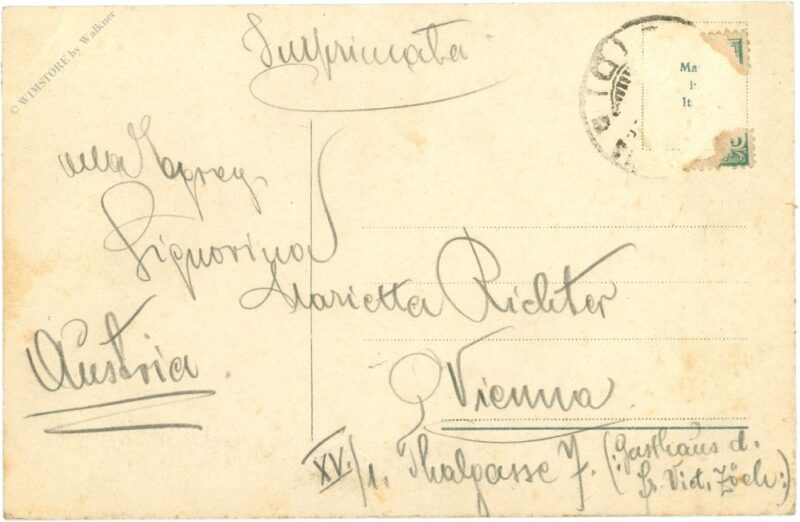 © WIMSTORE by Walkner
Imprimata
Ma
i
It
alla
Signorina
Marietta Richter
Austria.
Vienna.
XV./1. Thalgasse 7. (:Gasthaus d.
Fr. Vict. Zöch:)